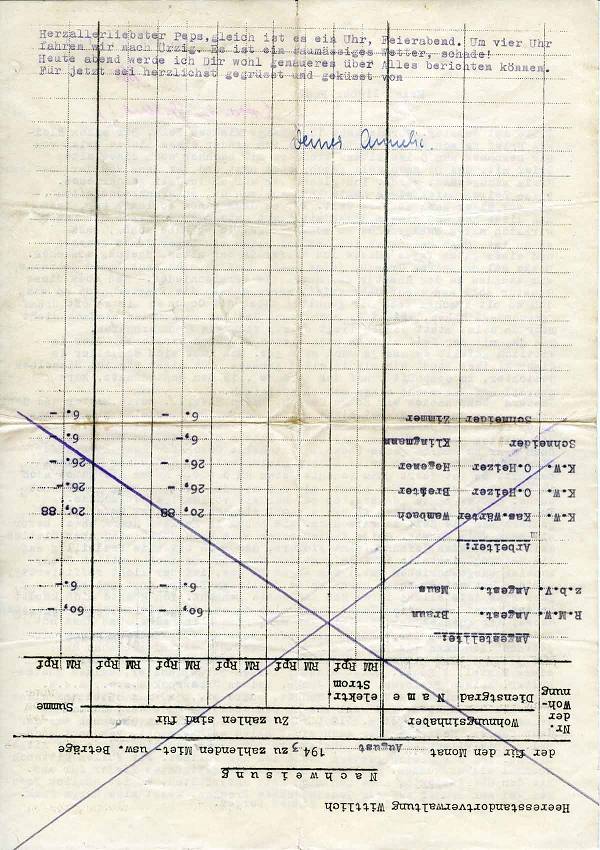 Herzallerliebster Peps,gleich ist es ein Uhr, Feierabend. Um vier Uhr
fahren wir nach Ürzig. Es ist ein saumässiges Wetter, schade!
Heute abend werde ich Dir wohl genaueres über Alles berichten können.
Für jetzt sei herzlichst gegrüsst und geküsst von
Deiner Annelie.
Heeresstandortverwaltung Wittlich
Nachweisung
der für den Monat August 1943 zu zahlenden Miet- usw. Beträge
Nr. der Woh- nung
Wohnungsinhaber
Dienstgrad Name
Zu zahlen sind für
elektr. Strom
Summe
RM Rpf RM Rpf RM Rpf RM Rpf RM Rpf RM Rpf
Angestellte:
R.M.W. Angest. Braun 60,- 60,-
z.b.V. Angest. Maus 6.- 6.-
Arbeiter:
K.W. Kas.Wärter Wambach 20, 88 20, 88
K.W. O.Heizer Breiter 26,- 26,-
K.W. O.Heizer Hegener 26.- 26.-
Schneider Klingmann 6,- 6.-
Schneider Zimmer 6.- 6.-